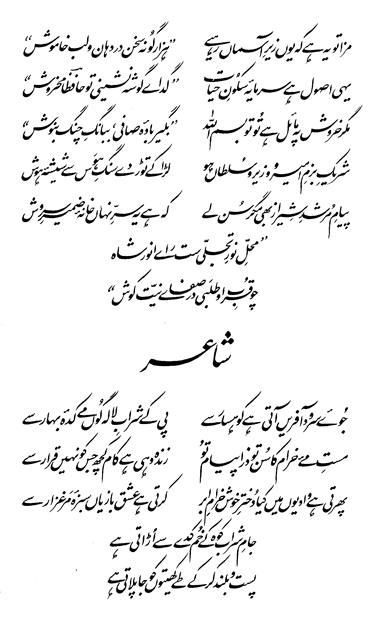 مزا تو یہ ہے کہ یوں زیرِ آسماں رہیے "ہزار گونہ سخن در دہان و لب خاموش"
یہی اصول ہے سرمایۂ سکونِ حیات "گدائے گوشہ نشینی تو حافظا مخروش"
مگر خروش پہ مائل ہے تُو تو بسم اللہ "بگیر بادۂ صافی، ببانگِ چنگ بنوش"
شریکِ بزمِ امیر و وزیر و سلطاں ہو لڑا کے توڑ دے سنگِ ہوس سے شیشۂ ہوش
پیامِ مرشدِ شیراز بھی مگر سُن لے کہ ہے یہ سرِّ نہاں خانۂ ضمیرِ سروش
"محلِ نورِ تجلّی ست رائے انورِ شاہ
چو قربِ او طلبی درصفائے نیّت کوش"
شاعر
جُوئے سرود آفریں آتی ہے کوہسار سے پی کے شرابِ لالہ گوں مے کدۂ بہار سے
مستِ مئے خرام کا سُن تو ذرا پیام تُو زندہ وہی ہے کام کچھ جس کو نہیں قرار سے
پھرتی ہے وادیوں میں کیا دخترِ خوش خرامِ ابر کرتی ہے عشق بازیاں سبزۂ مرغزار سے
جامِ شراب کوہ کے خُم کدے سے اُڑاتی ہے
پست و بلند کرکے طے کھیتوں کو جا پلاتی ہے